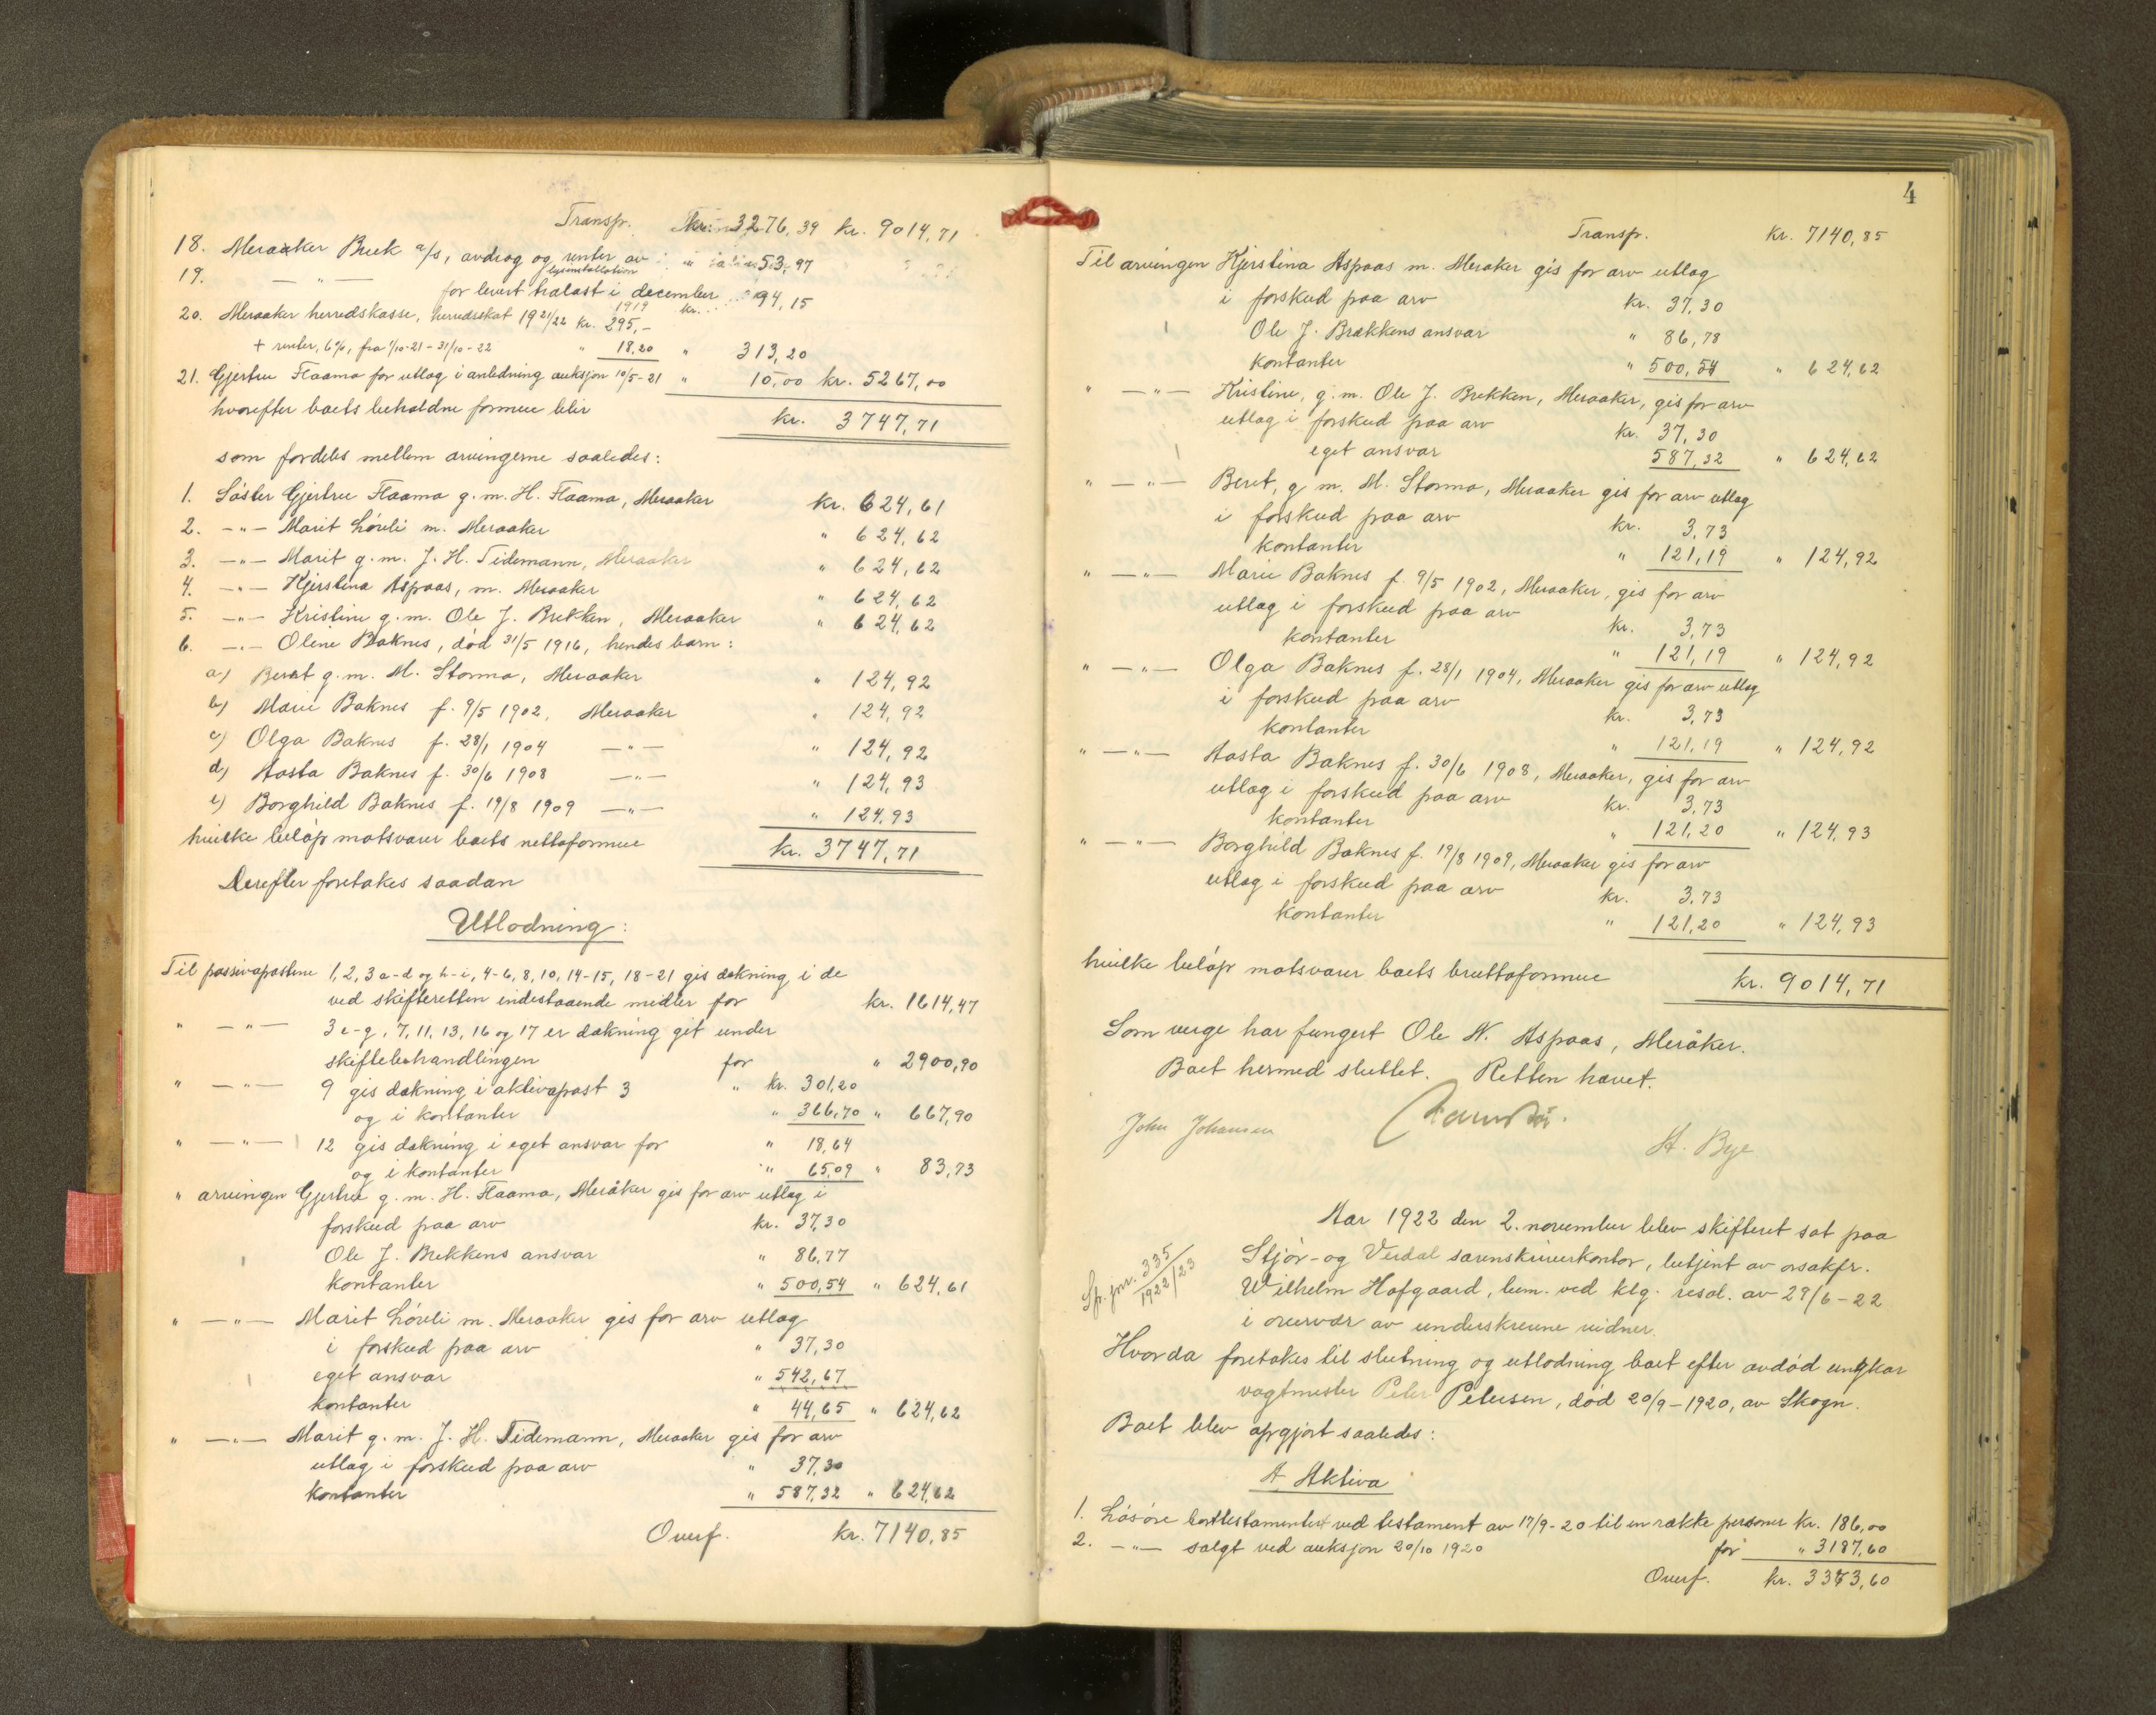 Transp. kr. 3276,39 kr. 9014,71
18. Meraaker Bruk a/s, avdrag og renter av " 53,97
lysinstallation
19. — " — for levert trælast i december " 94,15
1919 kr.
20. Meraaker herredskasse, herredsskat 19 21/22 kr. 295,-
+ renter, 6%, fra 1/10-21 - 31/10-22 " 18,20 " 313,20
21. Gjertru Flaamo for utlag i anledning auksjon 10/5-21 " 10,00 kr. 5267,00
hvorefter boets beholdne formue blir kr. 3747,71
som fordeles mellem arvingerne saaledes:
1. Søster Gjertru Flaamo g.m. H. Flaamo, Meraaker kr. 624,61
2. -"- Marit Løvli m. Meraaker " 624,62
3. -"- Marit g.m. J. H. Tidemann, Meraaker " 624,62
4. -"- Kjerstina Aspaas, m. Meraaker " 624,62
5. -"- Kristine g.m. Ole J. Brekken, Meraaker " 624,62
6. -"- Oline Baknes, død 31/5 1916, hendes barn:
a) Beret g.m. M. Stormo, Meraaker " 124,92
b) Marie Baknes f. 9/5 1902, Meraaker " 124,92
c) Olga Baknes f. 28/1 1904 —"— " 124,92
d) Aasta Baknes f. 30/6 1908 —"— " 124,93
e) Borghild Baknes f. 19/8 1909 —"— " 124,93
hvilke beløp motsvarer boets nettoformue kr. 3747,71
Derefter foretakes saadan
Utlodning:
Til passivapostene 1, 2, 3 a-d og h-i, 4-6, 8, 10, 14-15, 18-21 gis dækning i de
ved skifteretten indestaaende midler for kr. 1614,47
" — " — 3 e-g, 7, 11, 13, 16 og 17 er dækning git under
skiftebehandlingen for " 2900,90
" — " — 9 gis dækning i aktivapost 3 " kr. 301,20
og i kontanter " 366,70 " 667,90
" — " — 12 gis dækning i eget ansvar for " 18,64
og i kontanter " 65,09 " 83,73
" arvingen Gjertru g.m. H. Flaamo, Meråker gis for arv utlag i
forskud paa arv kr. 37,30
Ole J. Brekkens ansvar " 86,77
kontanter " 500,54 " 624,61
" — " — Marit Løvli m. Meraaker gis for arv utlag
i forskud paa arv " 37,30
eget ansvar " 542,67
kontanter " 44,65 " 624,62
" — " — Marit g.m. J. H. Tidemann, Meraaker gis for arv
utlag i forskud paa arv " 37,30
kontanter " 587,32 " 624,62
Overf. kr. 7140,85
4
Transp. kr. 7140,85
Til arvingen Kjerstina Aspaas m. Meraker gis for arv utlag
i forskud paa arv kr. 37,30
Ole J. Brækkens ansvar " 86,78
kontanter " 500,54 " 624,62
" — " — Kristine, g.m. Ole J. Brekken, Meraaker, gis for arv
utlag i forskud paa arv kr. 37,30
eget ansvar 587,32 " 624,62
" — " — Beret, g.m. M. Stormo, Meraaker gis for arv utlag
i forskud paa arv kr. 3,73
kontanter " 121,19 " 124,92
" — " — Marie Baknes f. 9/5 1902, Meraaker, gis for arv
utlag i forskud paa arv kr. 3,73
kontanter " 121,19 " 124,92
" — " — Olga Baknes f. 28/1 1904, Meraaker gis for arv utlag
i forskud paa arv kr. 3,73
kontanter " 121,19 " 124,92
" — " — Aasta Baknes f. 30/6 1908, Meraaker, gis for arv
utlag i forskud paa arv kr. 3,73
kontanter " 121,20 " 124,93
" — " — Borghild Baknes f. 19/8 1909, Meraaker gis for arv
utlag i forskud paa arv kr. 3,73
kontanter " 121,20 " 124,93
hvilke beløp motsvarer boets bruttoformue kr. 9014,71
Som verge har fungert Ole N. Aspaas, Meråker.
Boet hermed sluttet. Retten hævet.
John Johansen
A. Bye
Aar 1922 den 2. november blev skifteret sat paa
Sk.jnr. 335 1922/23
Stjør- og Verdal sorenskriverkontor, betjent av o.sakfr.
Wilhelm Hofgaard, bem. ved klg. resol. av 29/6-22
i overvær av underskrevne vidner.
Hvorda foretokes til slutning og utlodning boet efter avdød ungkar
vagtmester Peter Petersen, død 20/9-1920, av Skogn.
Boet blev opgjort saaledes:
A Aktiva
1. Løsøre borttestamentert ved testament av 17/9-20 til en række personer kr. 186,00
2. —"— solgt ved auksjon 20/10 1920 for " 3187,60
Overf. kr. 3373,60